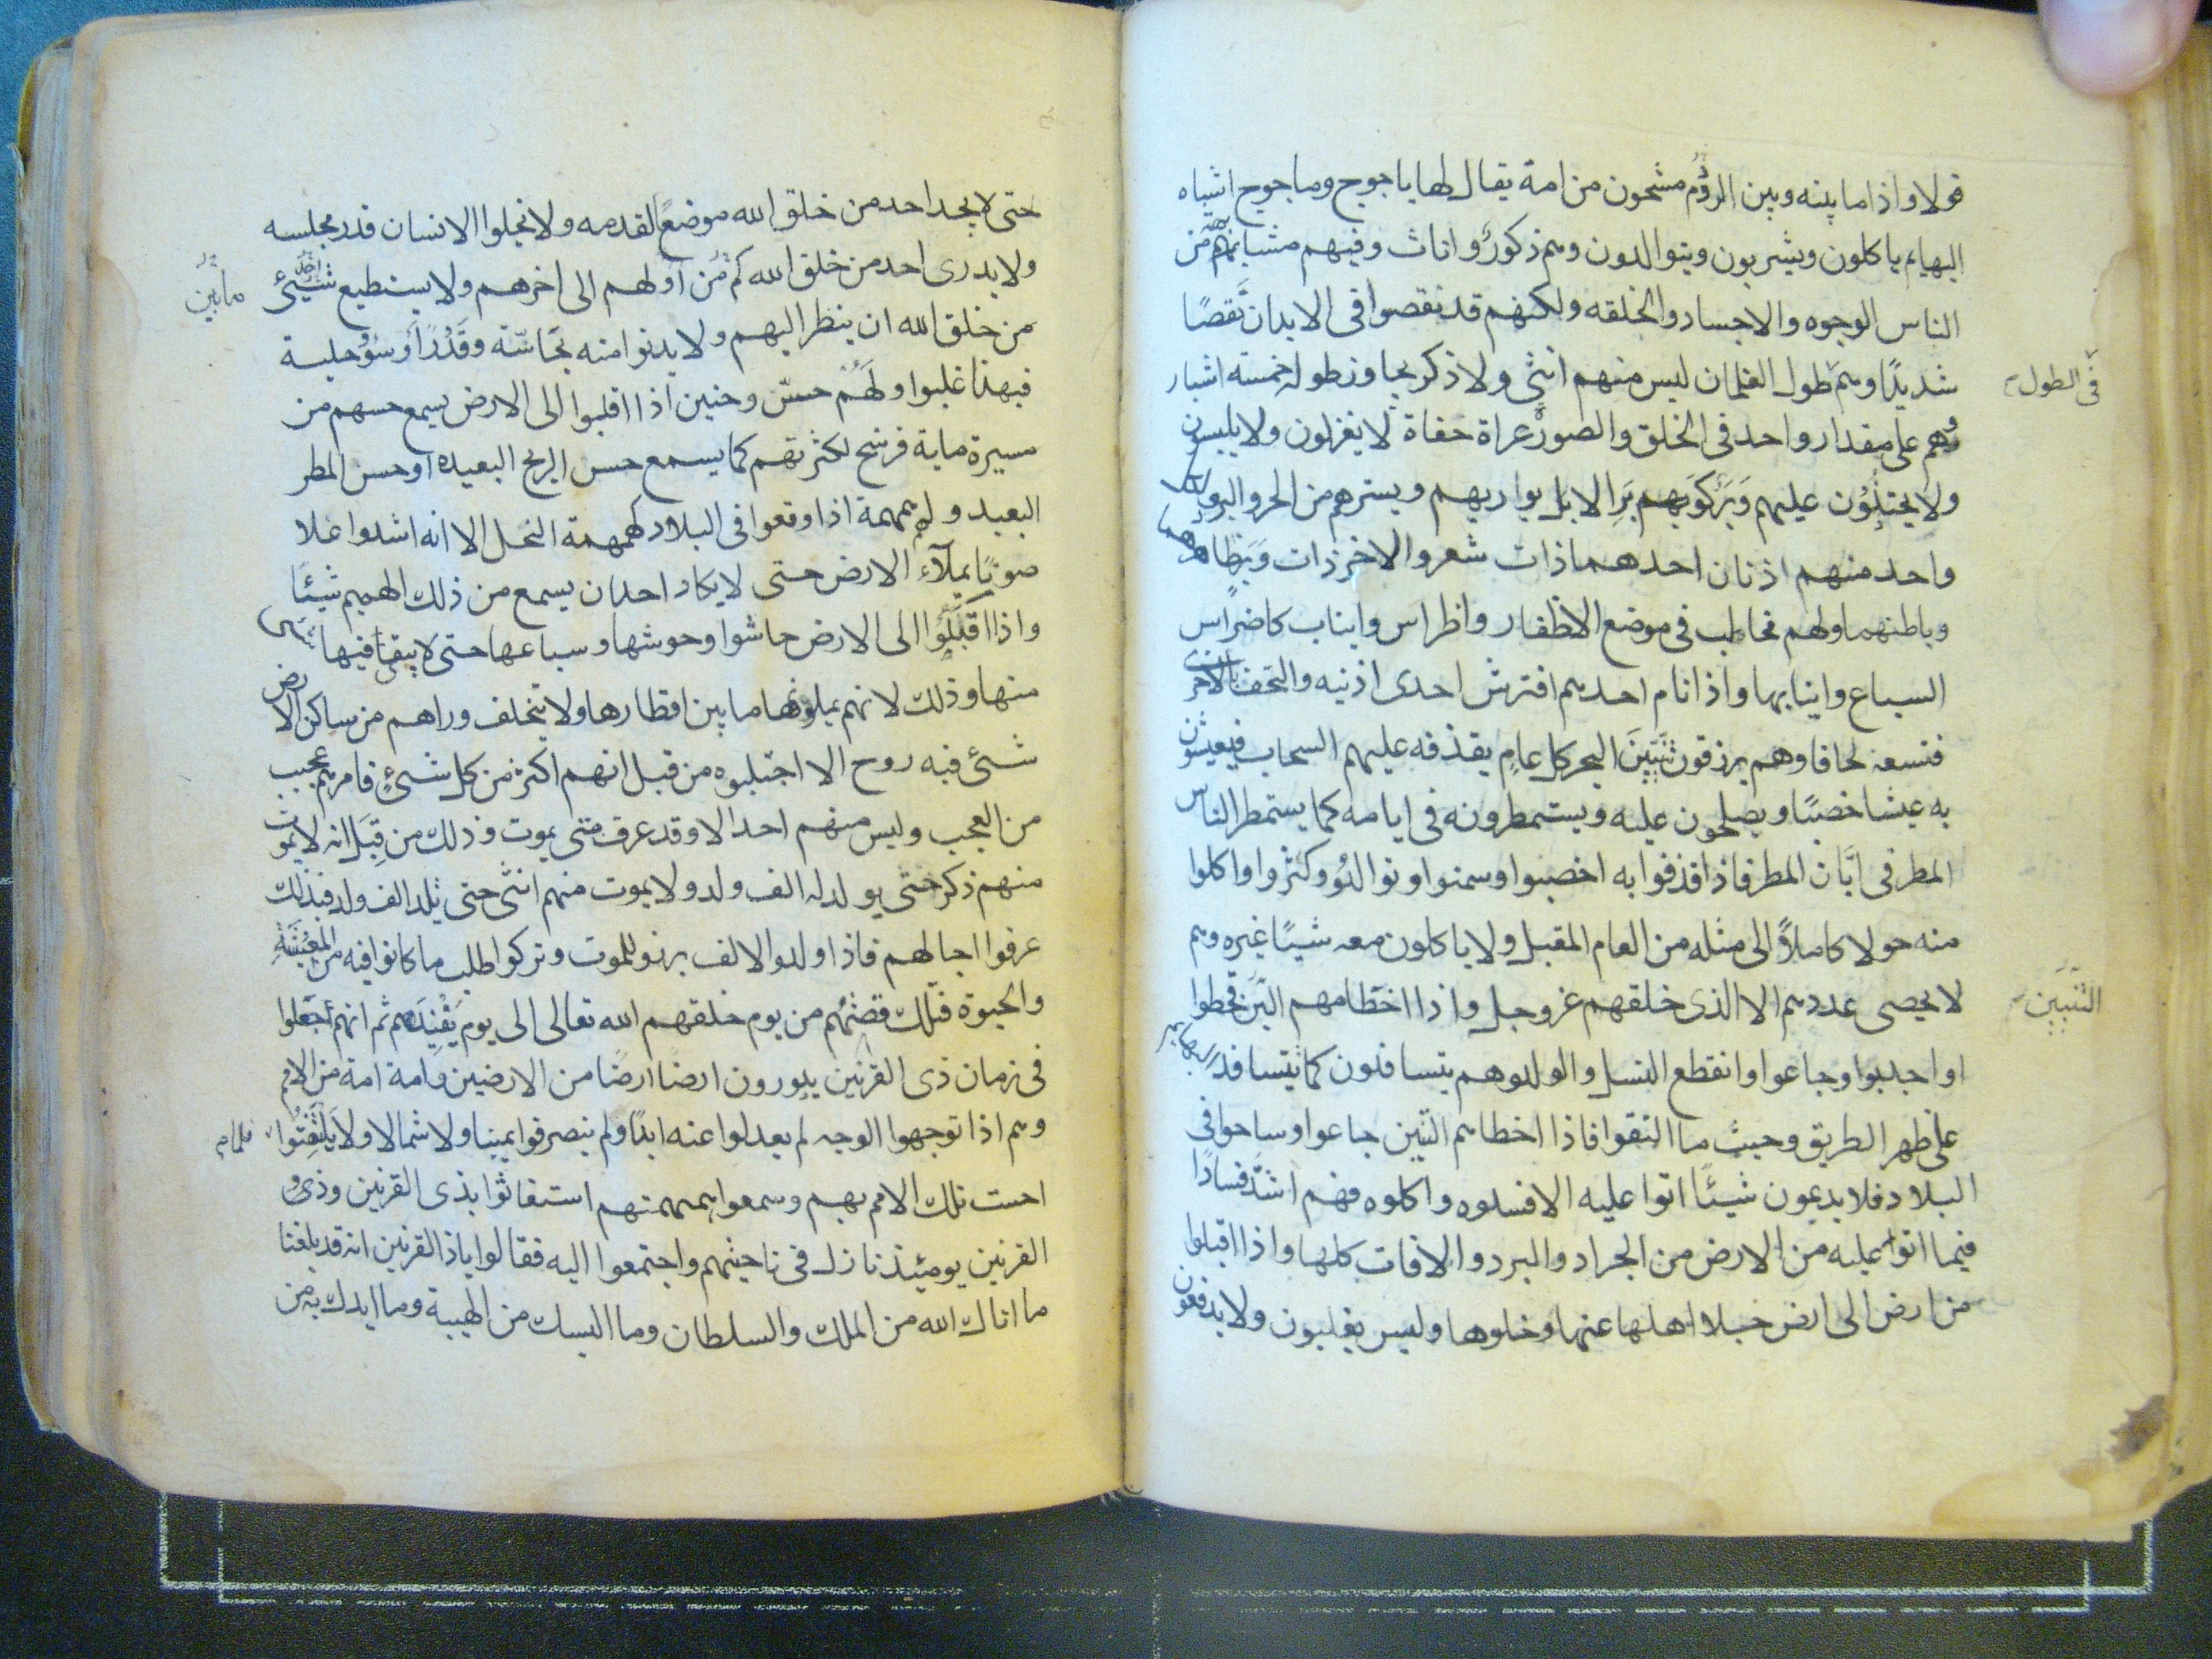 قولا واذا ما بينه وبين الرؤم مشحون من امة يقال لها ياجوج وماجوج اشباه
البهايم ياكلون ويشربون ويتوالدون وهم ذكور واناث وفيهم مشابهة من
الناس الوجوه والاجساد والخلقه ولكنهم قد نقصوا فى الابدان نقصًا
شديدًا وهم طول الغلمان ليس منهم انثى ولا ذكر يجاوز طوله خمسة اشبار
فى الطول
وهم على مقدار واحد فى الخلق والصور عراة حفاة لا يغزلون ولا يلبسون
ولا يحتذون عليهم وبركوبهم بر الابل يواريهم ويسترهم من الحر والبرد ولكل
واحد منهم اذنان احدهما ذات شعر والاخر ذات وبر ظاهرهما
وباطنهما ولهم مخاطب فى موضع الاظفار واظراس وانياب كاضراس
السباع وانيابها واذا نام احدهم افترش احدى اذنيه والتحف بالاخرى
فتسعه لحافا وهم يرزقون تنين البحر كل عام يقذفه عليهم السحاب فيعيشون
به عيشا خصبًا ويصلحون عليه ويستمطرونه فى ايامه كما يستمطر الناس
المطر فى ابّان المطر فاذا قذفوا به اخصبوا وسمنوا وتوالدو وكثروا واكلوا
منه حولا كاملاً الى مثله من العام المقبل ولا ياكلون معه شيئًا غيره وهم
لا يحصى عددهم الا الذى خلقهم عز وجل واذا اخطامهم التين قحطوا
التنين
او اجدبوا وجاعوا وانقطع النسل والولد وهم يتسافدون كما يتسافد البهايم
على ظهر الطريق وحيث ما التقوا فاذا اخطاهم التنين جاعوا وساحوا فى
البلاد فلا يدعون شيئًا اتوا عليه الا افسدوه واكلوه فهم اشدّ فسادًا
فيما اتوا عليه من الارض من الجراد والبرد والافات كلها واذا اقبلوا
من ارض الى ارض جلا اهلها عنها وخلوها وليس يغلبون ولا يدفعون
حتى لا يجد احد من خلق الله موضعًا لقدمه ولا يخلوا الانسان قدر مجلسه
ولا يدرى احد من خلق الله كم من اولهم الى اخرهم ولا يستطيع شيئ
احد
ما بين
من خلق الله ان ينظر اليهم ولا يدنوا منه نجاسّة وقذرًا وسوء حلية
فبهذا غلبوا ولهم حسّ وحنين اذا اقبلوا الى الارض يسمع حسهم من
مسيرة ماية فرسخ لكثرتهم كما يسمع حس الريح البعيده او حس المطر
البعيد ولهم همهمة اذا وقعوا فى البلاد كهمهمة النحل الا انه اشد واعلا
صوتًا يملآء الارض حتى لا يكاد احد ان يسمع من ذلك الهميم شيئًا
واذا اقبلوا الى الارض حاشوا وحوشها وسباعها حتى لا يبقى فيها شئ
منها وذلك لانهم يملونها ما بين اقطارها ولا يتخلف وراهم من ساكن الارض
شئ فيه روح الا اجتلبوه من قبل انهم اكثر من كل شئ فامرهم عجيب
من العجب وليس منهم احد الا وقد عرف متى يموت وذلك من قبل انه لا يموت
منهم ذكر حتى يولد له الف ولد ولا يموت منهم انثى حتى تلد الف ولد فبذلك
عرفوا اجالهم فاذا ولدوا الالف برزو للموت وتركوا طلب ما كانوا فيه من المعيشة
والحيوة فتلك قصتهم من يوم خلقهم الله تعالى الى يوم يفنيهم ثم انهم اجفلوا
فى زمان ذى القرنين يدورون ارضا ارضًا من الارضين وامة امة من الامم
وهم اذا توجهوا الوجه لم يعدلوا عنه ابدًا ولم ينصرفوا يمينا ولا شمالا ولا يلتفتوا
فلما
احست تلك الامم بهم وسمعوا همهمتهم استغاثوا بذى القرنين وذو
القرنين يومئذ نازل فى ناحيتهم واجتمعوا اليه فقالوا ياذا القرنين انه قد بلغنا
ما اتاك الله من الملك والسلطان وما البسك من الهيبة وما ايدك به من